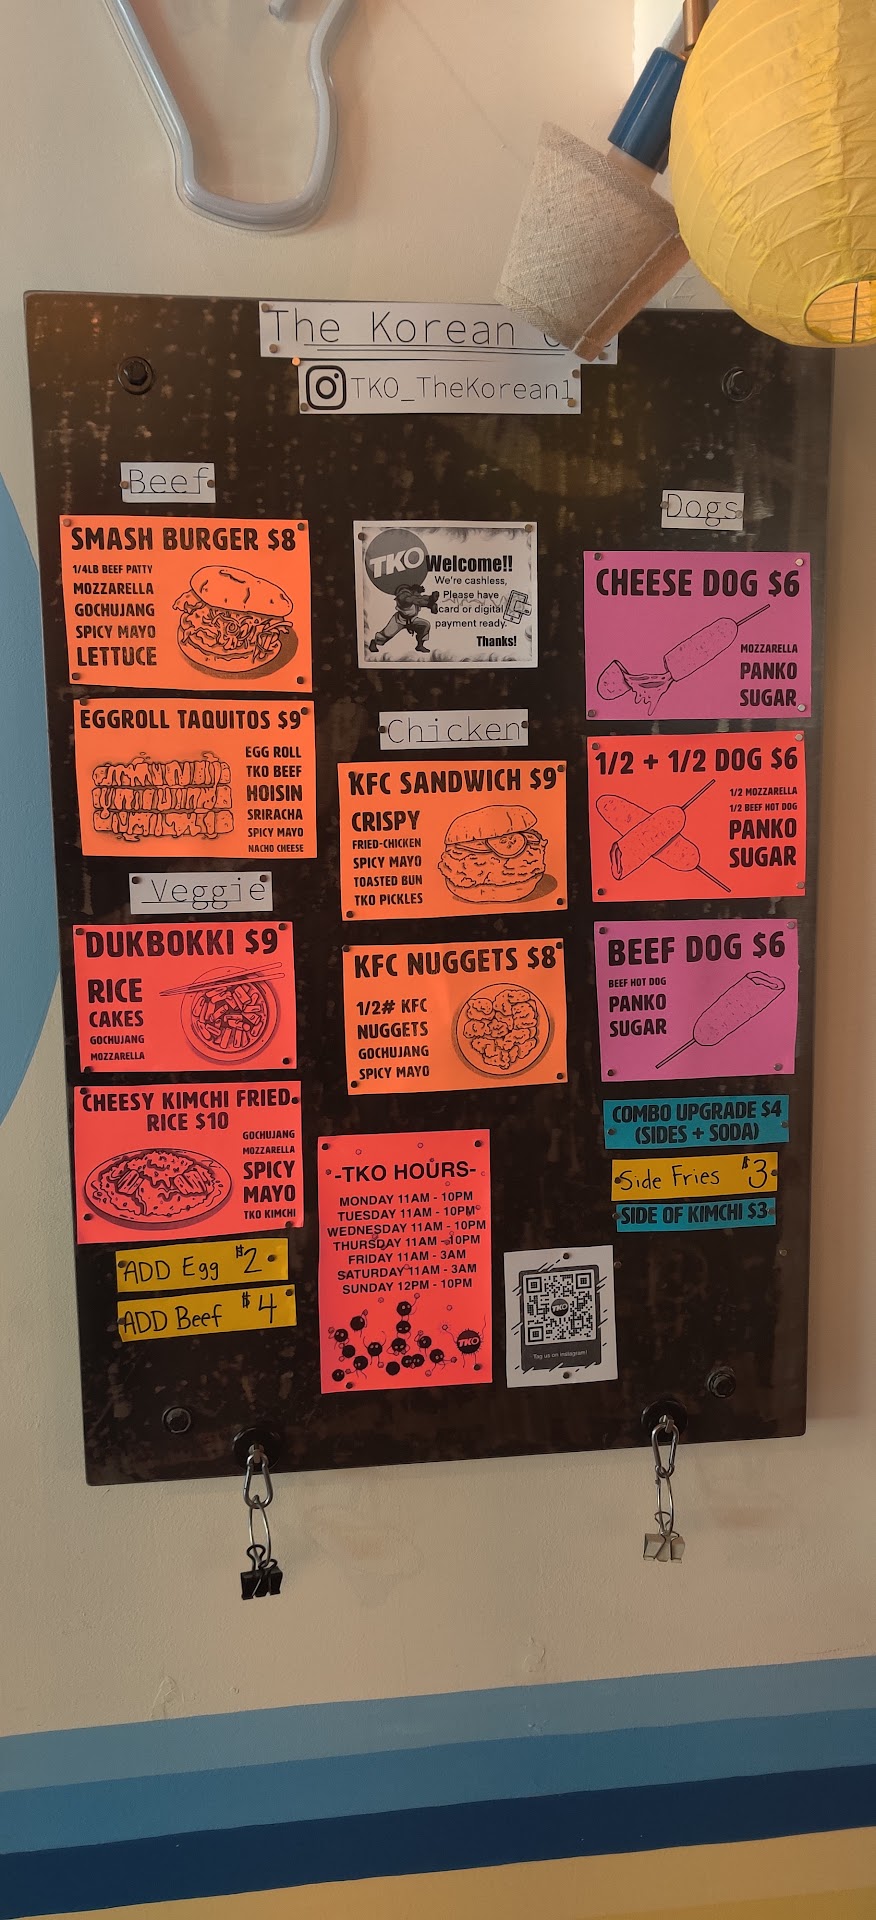 The Korean
TKO_TheKorean1
Beef
SMASH BURGER $8
1/4LB BEEF PATTY
MOZZARELLA
GOCHUJANG
SPICY MAYO
LETTUCE
EGGROLL TAQUITOS $9
EGG ROLL
TKO BEEF
HOISIN
SRIRACHA
SPICY MAYO
NACHO CHEESE
Veggie
DUKBOKKI $9
RICE
CAKES
GOCHUJANG
MOZZARELLA
CHEESY KIMCHI FRIED
RICE $10
GOCHUJANG
MOZZARELLA
SPICY
MAYO
TKO KIMCHI
ADD Egg $2
ADD Beef $4
TKO
Welcome!!
We're cashless,
Please have
card or digital
payment ready.
Thanks!
Chicken
KFC SANDWICH $9
CRISPY
FRIED-CHICKEN
SPICY MAYO
TOASTED BUN
TKO PICKLES
KFC NUGGETS $8
1/2# KFC
NUGGETS
GOCHUJANG
SPICY MAYO
-TKO HOURS-
MONDAY 11AM - 10PM
TUESDAY 11AM - 10PM
WEDNESDAY 11AM - 10PM
THURSDAY 11AM - 10PM
FRIDAY 11AM - 3AM
SATURDAY 11AM - 3AM
SUNDAY 12PM - 10PM
TKO
TKO
Tag us on instagram!
Dogs
CHEESE DOG $6
MOZZARELLA
PANKO
SUGAR
1/2 + 1/2 DOG $6
1/2 MOZZARELLA
1/2 BEEF HOT DOG
PANKO
SUGAR
BEEF DOG $6
BEEF HOT DOG
PANKO
SUGAR
COMBO UPGRADE $4
(SIDES + SODA)
Side Fries $3
SIDE OF KIMCHI $3